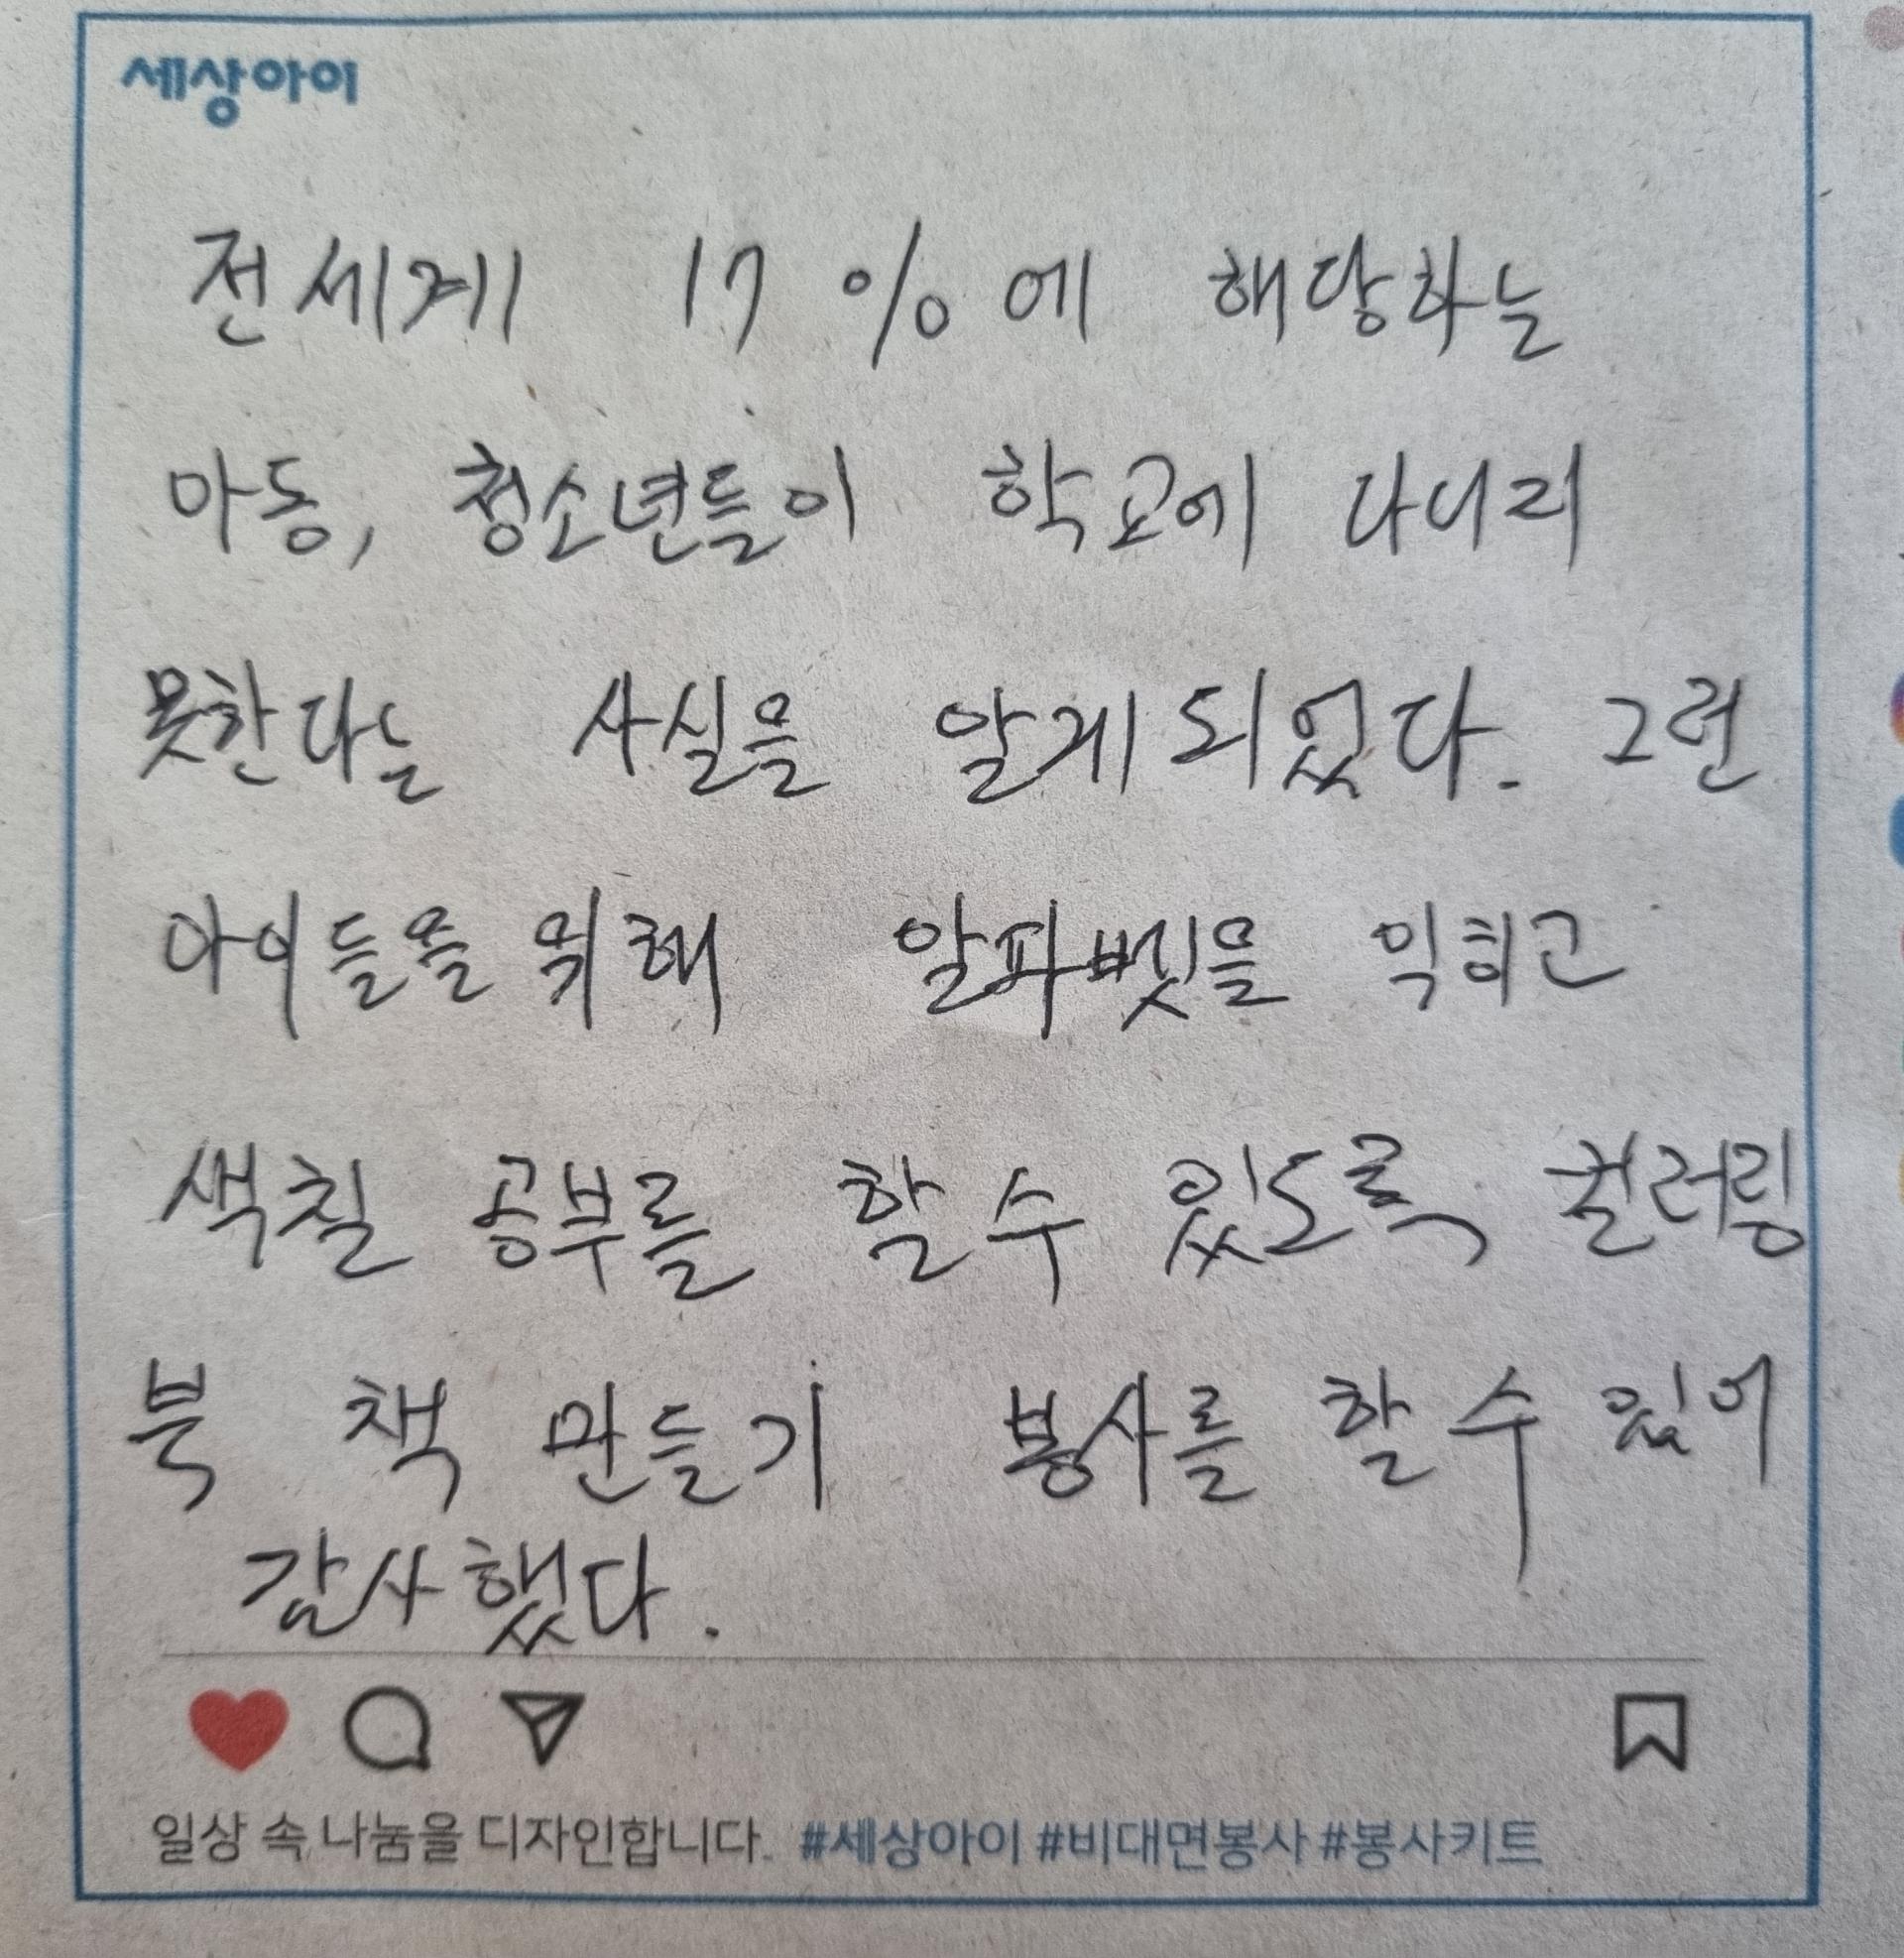 세상아이
전세계 17%에 해당하는
아동, 청소년들이 학교에 다니지
못한다는 사실을 알게되었다. 그런
아이들을 위해 알파벳을 익히고
색칠 공부를 할 수 있도록 컬러링
북 책 만들기 봉사를 할 수 있어
감사했다.
일상 속 나눔을 디자인합니다. #세상아이 #비대면봉사 #봉사키트